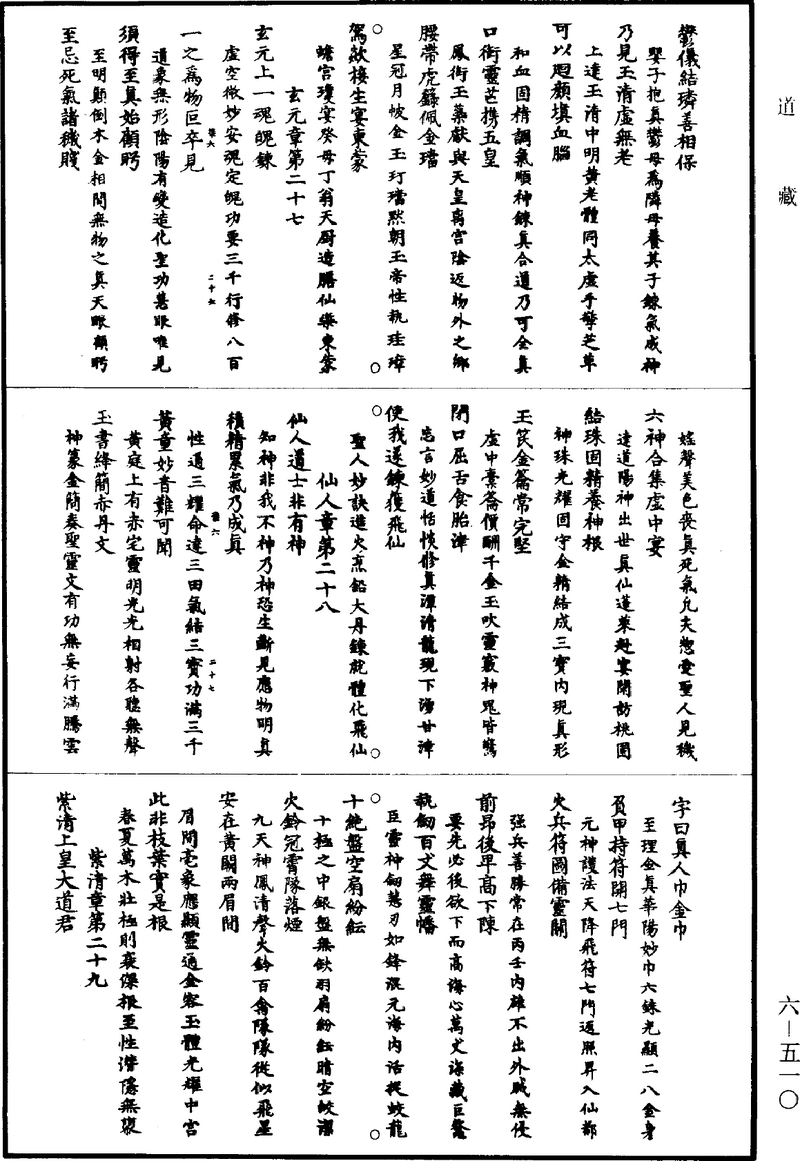 道藏
鬱儀結璘善相保
嬰子抱真鬱母為隣母養其子鍊氣成神
乃見玉清虛無老
上達玉清中明黃老體同太虛手擎芝草
可以廻顏填血腦
和血固精調氣順神鍊真合道乃可全真
口銜靈芒攜五皇
鳳銜玉蘂獻與天皇离宮陰返物外之鄉
腰帶虎籙佩金璫
星冠月帔金玉玎璫默朝玉帝性執珪璋
駕欻接生宴東蒙
蟾宮瓊宴癸母丁翁天厨造膳仙樂東蒙
玄元章第二十七
玄元上一魂魄鍊
虛空微妙安魂定魄功要三千行修八百
一之為物叵卒見
道象無形陰陽有變造化聖功慧眼唯見
須得至真始顧眄
至明顛倒木金相間無物之真天眼顧眄
至忌死氣諸穢賤
婬聲美色喪真死氣凡夫怱愛聖人見穢
六神合集虛中宴
達道陽神出世真仙蓬萊赴宴閬訪桃園
結珠固精養神根
神珠光耀固守金精結成三寶內現真形
玉笢金籥常完堅
虛中橐籥價酬千金玉吹靈竅神鬼皆驚
閉口屈舌食胎津
忘言妙道恬惔修真潭清龍現下湧甘津
使我遂鍊獲飛仙
聖人妙訣進火烹鉛大丹鍊就體化飛仙
仙人章第二十八
仙人道士非有神
知神非我不神乃神恐生斷見應物明真
積精累氣乃成真
性通三耀命達三田氣結三寶功滿三千
黃童妙音難可聞
黃庭上有赤宅靈明光光相射各聽無聲
玉書絳簡赤丹文
神篆金簡奏聖靈文有功無妄行滿騰雲
字曰真人巾金巾
至理金真華陽妙巾六銖光顯二八金身
負甲持符開七門
元神護法天降飛符七門返照昇入仙都
火兵符圖備靈關
強兵善勝常在丙壬內雄不出外賊無侵
前昂後卑高下陳
要先必後欲下而高海心萬丈深藏巨鰲
執劒百丈舞靈幡
臣靈神劒慧刃如鋒混元海內活捉蛟龍
十絶盤空扇紛紜
十極之中銀盤無缺羽扇紛紜晴空皎潔
火鈴冠霄隊落煙
九天神鳳清聲火鈴百禽隊隊從似飛星
安在黃闕兩眉間
眉間毫象應顯靈通金容玉體光耀中宮
此非枝葉實是根
春夏萬木壯極則衰傑根至性潛隱無衰
紫清章第二十九
紫清上皇大道君
六－五一〇